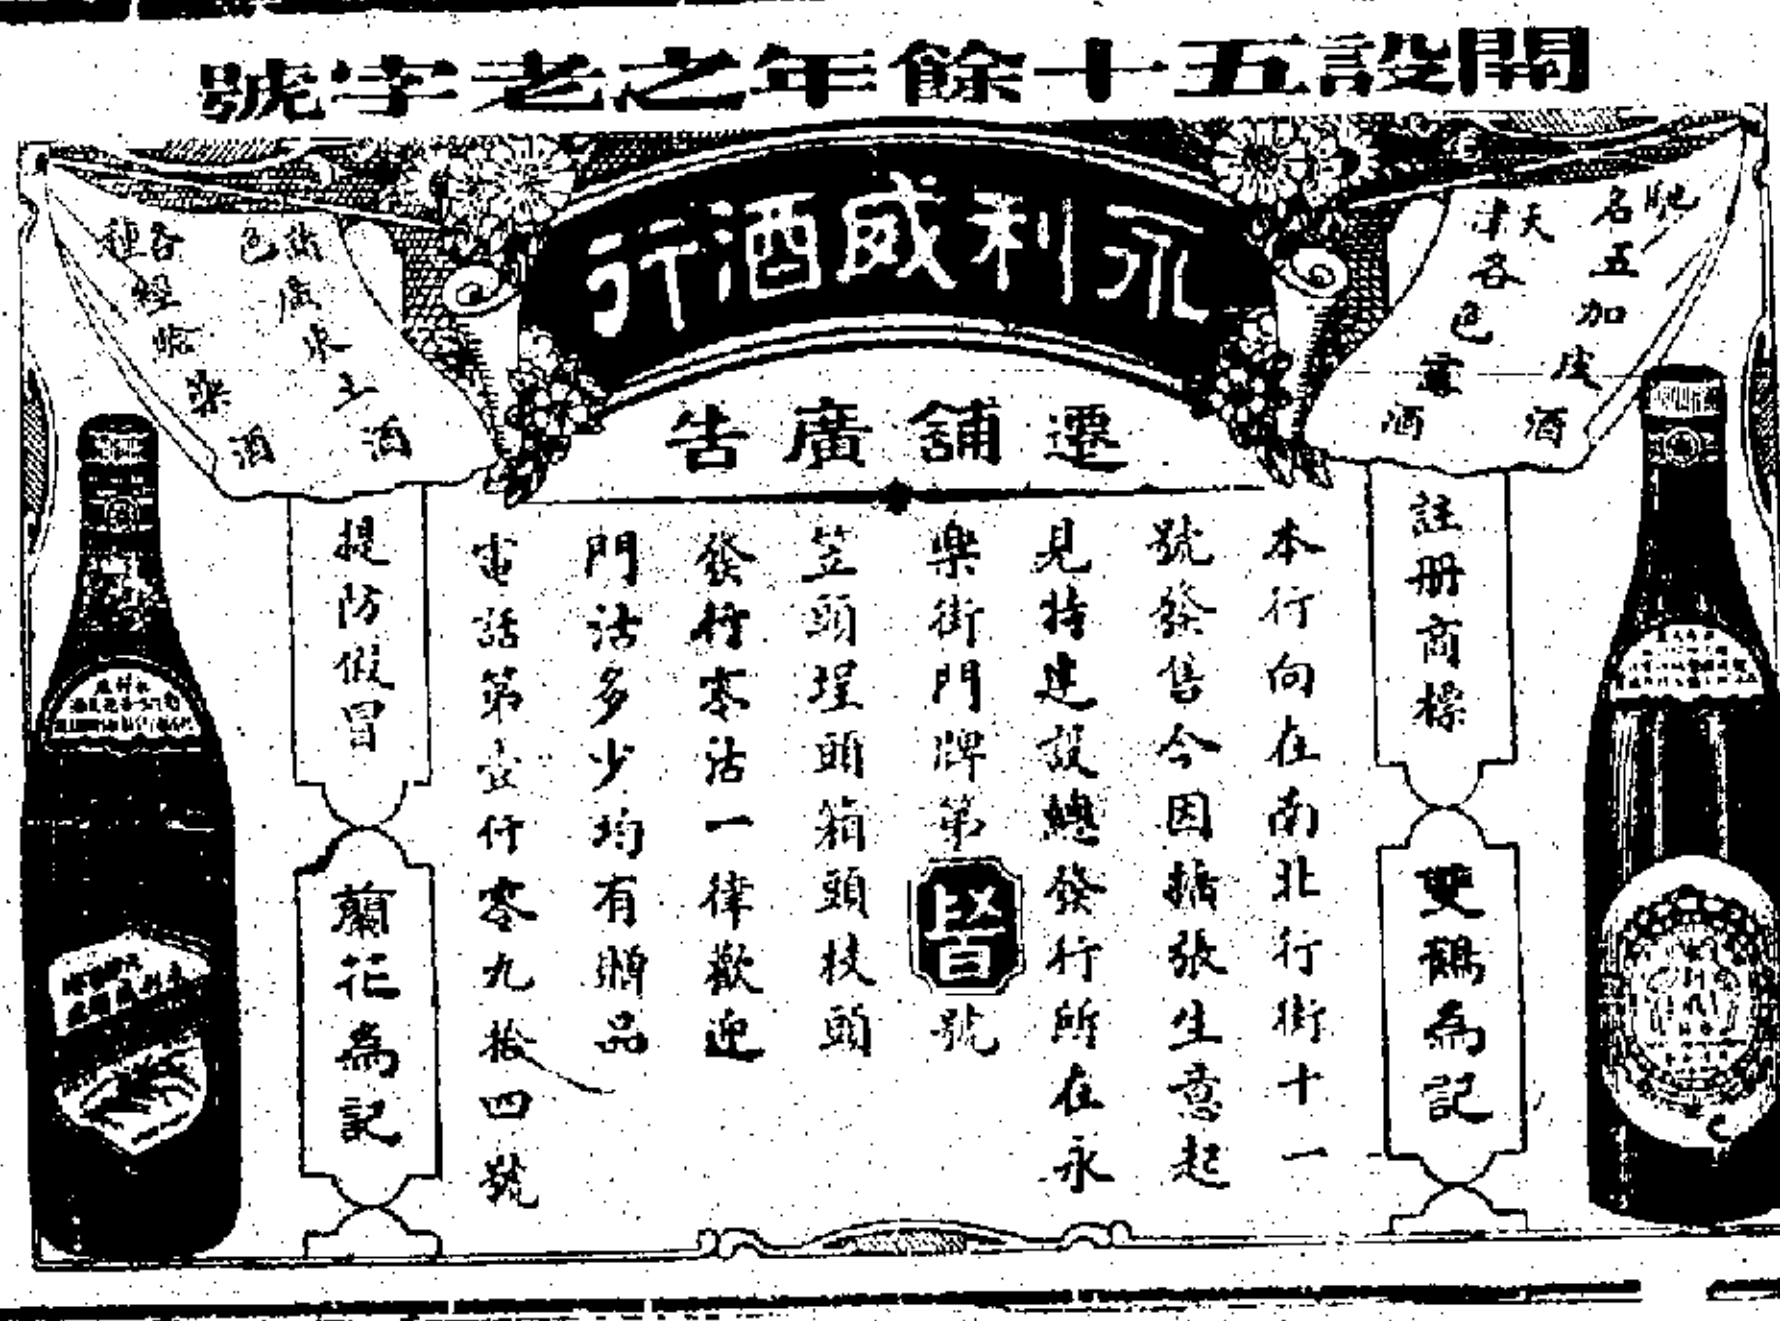 開設五十餘年之老字號
永利威酒行
遷舖廣告
馳名五加皮酒
天津各色露酒
諸色廣東土酒
各種經驗藥酒
註册商標
雙鶴為記
本行向在南北行街十一
號發售今因擴張生意起
見特建設總發行所在永
樂街門牌第
號
笠頭埕頭箱頭枝頭
發行零沽一律歡迎
門沽多少均有贈品
電話第壹仟零九拾四號
提防假冒
蘭花為記